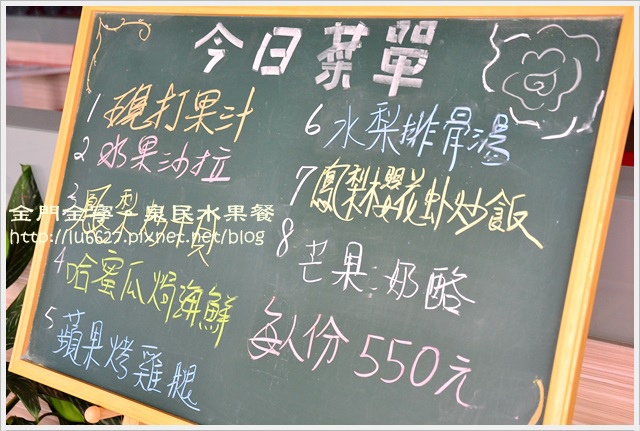 今日菜單
1 現打果汁
2 水果沙拉
3 鳳梨
4 哈蜜瓜焗海鮮
5 蘋果烤雞腿
6 水梨排骨湯
7 鳳梨櫻花虾炒飯
8 芒果奶酪
每人份 550元
水果餐
http://lu6627.pixnet.net/blog